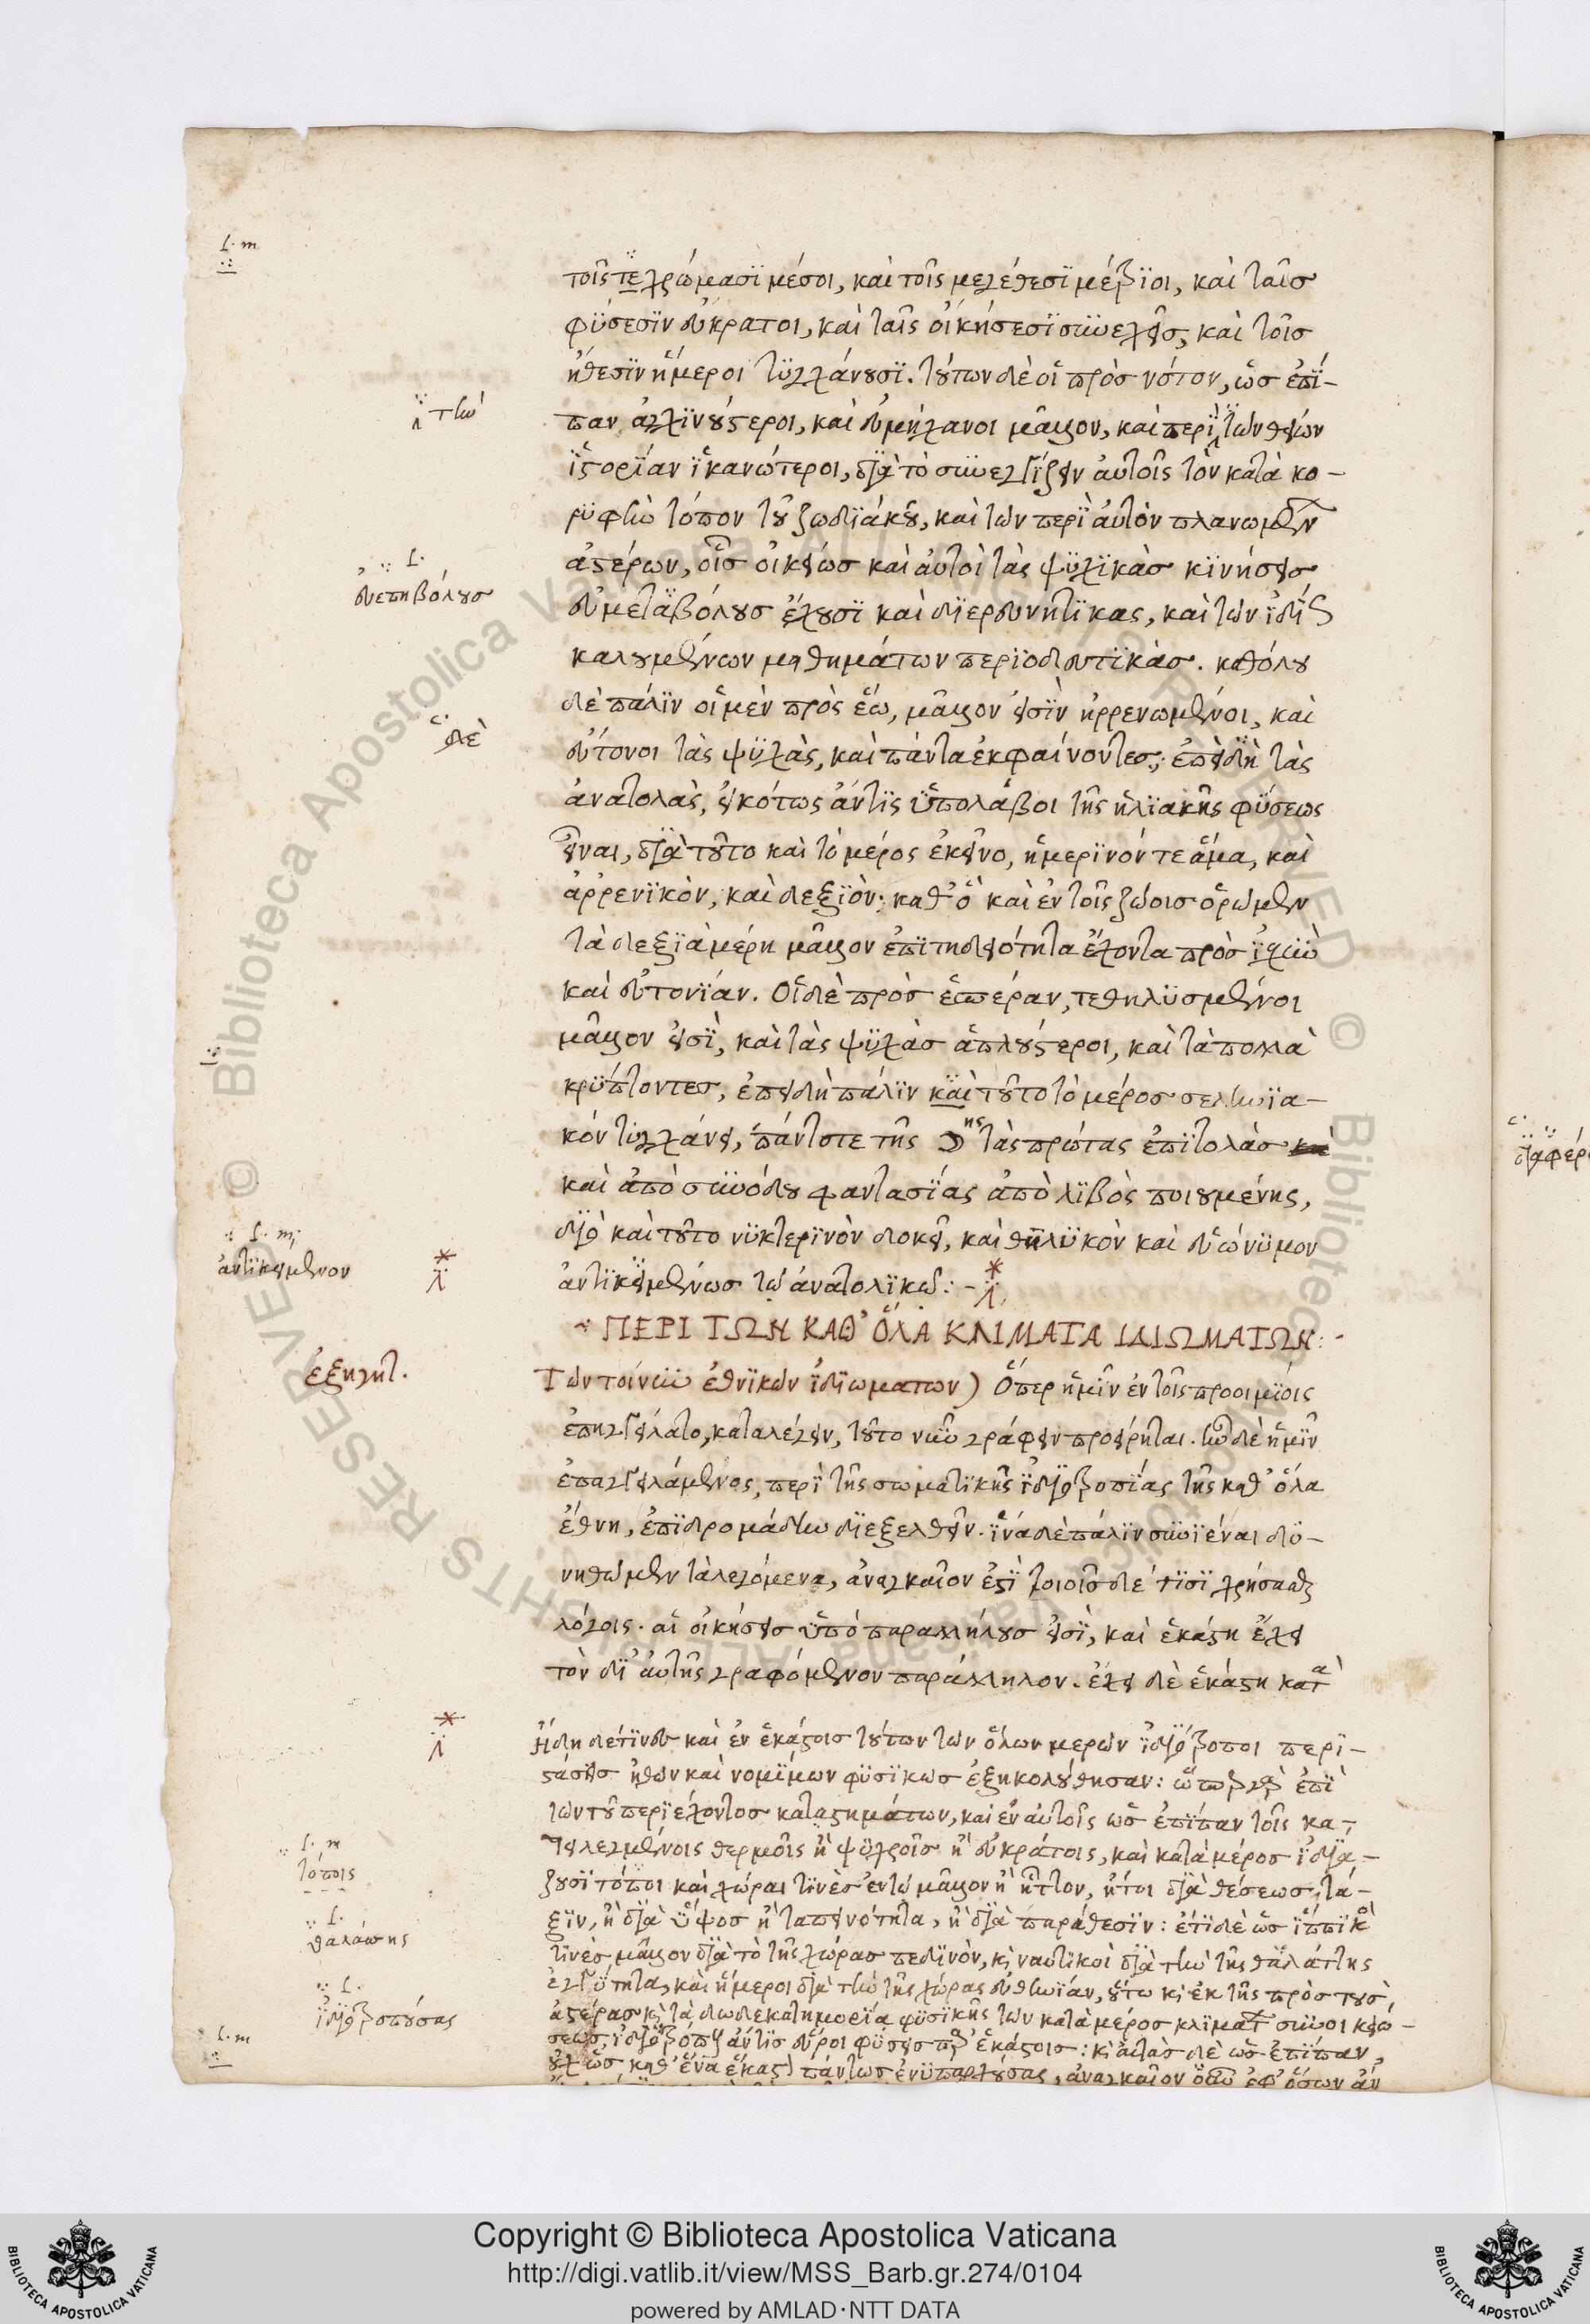 τοῖς τε χρώμασι μέσοι, καὶ τοῖς μεγέθεσι μέτριοι, καὶ ταῖς
φύσεσιν εὔκρατοι, καὶ ταῖς οἰκήσεσι συνεχεῖς, καὶ τοῖς
ἤθεσιν ἥμεροι τυγχάνουσι. τούτων δὲ οἱ πρὸς νότον, ὡς ἐπί-
παν ἀγχινούστεροι, καὶ εὐμήχανοι μᾶλλον, καὶ περὶ τῶν θείων
ἱστορίαν ἱκανώτεροι, διὰ τὸ συνεγγίζειν αὐτοῖς τὸν κατὰ κο-
ρυφὴν τόπον τοῦ ζωδιακοῦ, καὶ τῶν περὶ αὐτὸν πλανωμένων
ἀστέρων, οἷς οἰκείως καὶ αὐτοὶ τὰς ψυχικὰς κινήσεις
εὐμεταβόλους ἔχουσι καὶ διερευνητικας, καὶ τῶν ἰδίως
καλουμένων μαθημάτων περιοδευτικὰς. καθόλου
δὲ πάλιν οἱ μὲν πρὸς ἕω, μᾶλλον εἰσὶν ἠρρενωμένοι, καὶ
εὔτονοι τὰς ψυχὰς, καὶ πάντα ἐκφαίνοντες, ἐπειδὴ τὰς
ἀνατολὰς, εἰκότως ἄν τις ὑπολάβοι τῆς ἡλιακῆς φύσεως
εἶναι, διὰ τοῦτο καὶ τὸ μέρος ἐκεῖνο, ἡμερινόν τε ἅμα, καὶ
ἀρρενικὸν, καὶ δεξιὸν· καθ' ὃ καὶ ἐν τοῖς ζώοις ὁρῶμεν
τὰ δεξιὰ μέρη μᾶλλον ἐπιτηδειότητα ἔχοντα πρὸς ἰσχὺν
καὶ εὐτονίαν. Οἱ δὲ πρὸς ἑσπέραν, τεθηλυσμένοι
μᾶλλον εἰσὶ, καὶ τὰς ψυχὰς ἁπλούστεροι, καὶ τὰ πολλὰ
κρύπτοντες, ἐπειδὴ πάλιν καὶ τοῦτο τὸ μέρος σεληνια-
κόν τυγχάνει, πάντοτε τῆς ☽ης τὰς πρώτας ἐπιτολὰς
καὶ ἀπὸ συνόδου φαντασίας ἀπὸ λιβὸς ποιουμένης,
διὸ καὶ τοῦτο νυκτερινὸν δοκεῖ, καὶ θηλυκὸν καὶ εὐώνυμον
ἀντικειμένως τῷ ἀνατολικῷ:-
ΠΕΡΙ ΤΩΝ ΚΑΘ' ὍΛΑ ΚΛΙΜΑΤΑ ΙΔΙΩΜΑΤΩΝ:-
Τῶν τοίνυν ἐθνικῶν ἰδιωματων) Ὅπερ ἡμῖν ἐν τοῖς προοιμίοις
ἐπηγγείλατο, καταλέγειν, τοῦτο νῦν γράφειν προείρηται. ἦν δὲ ἡμῖν
ἐπαγγειλάμενος, περὶ τῆς σωματικῆς ἰδιοτροπίας τῆς καθ' ὅλα
ἔθνη, ἐπιδρομάδην διεξελθεῖν. ἵνα δὲ πάλιν συνιέναι δυ-
νηθῶμεν τὰ λεγόμενα, ἀναγκαῖον ἐστὶ τοιοῖς δέ τισι χρήσασθαι
λόγοις. αἱ οἰκήσεις ὑπὸ παραλλήλους εἰσὶ, καὶ ἑκάστη ἔχει
τὸν δι' αὐτῆς γραφόμενον παράλληλον. ἔχει δὲ ἑκάστη κατὰ
Ἤδη δέ τινες καὶ ἐν ἑκάστοις τούτων τῶν ὅλων μερῶν ἰδιότροποι περι-
στάσεις ἠθῶν καὶ νομίμων φυσικῶς ἐξηκολούθησαν: ὥσπερ γὰρ ἐπὶ
τῶν τοῦ περιέχοντος καταστημάτων, καὶ ἐν αὐτοῖς ὡς ἐπίπαν τοῖς κα-
τειλεγμένοις θερμοῖς ἢ ψυχροῖς ἢ εὐκράτοις, καὶ κατὰ μέρος ἰδιά-
ζουσι τόποι καὶ χῶραι τινὲς ἐν τῷ μᾶλλον ἢ ἧττον, ἤτοι διὰ θέσεως τά-
ξιν, ἢ διὰ ὕψος ἢ ταπεινότητα, ἢ διὰ παράθεσιν: ἔτι δὲ ὡς ἱππικοὶ
τινὲς μᾶλλον διὰ τὸ τῆς χώρας πεδινὸν, κὶ ναυτικοὶ διὰ τὴν τῆς θαλάττης
ἐγγύτητα, καὶ ἥμεροι διὰ τὴν τῆς χώρας εὐθηνίαν, οὕτω κὶ ἐκ τῆς πρὸς τοὺς
ἀστέρας κὶ τὰ δωδεκατημορία φυσικῆς τῶν κατὰ μέρος κλιμάτων συνοικειώ-
σεως, ἰδιοτρόπους ἄν τις εὕροι φύσεις παρ' ἑκάστοις: κὶ αὐτὰς δὲ ὡς ἐπίπαν,
οὐχ ὡς καθ' ἕνα ἕκαστον πάντως ἐνυπαρχούσας, ἀναγκαῖον οὖν ἐφ' ὅσων ἂν
l. m
τὴν
l.
εὐεπηβόλους
δὲ
l. m.
ἀντικείμενον
ἐξηγητ.
l. m
τόποις
l.
θαλάσσης
l.
ἰδιοτροπούσας
l. m
Copyright © Biblioteca Apostolica Vaticana
http://digi.vatlib.it/view/MSS_Barb.gr.274/0104
powered by AMLAD·NTT DATA
BIBLIOTECA APOSTOLICA VATICANA
BIBLIOTECA APOSTOLICA VATICANA